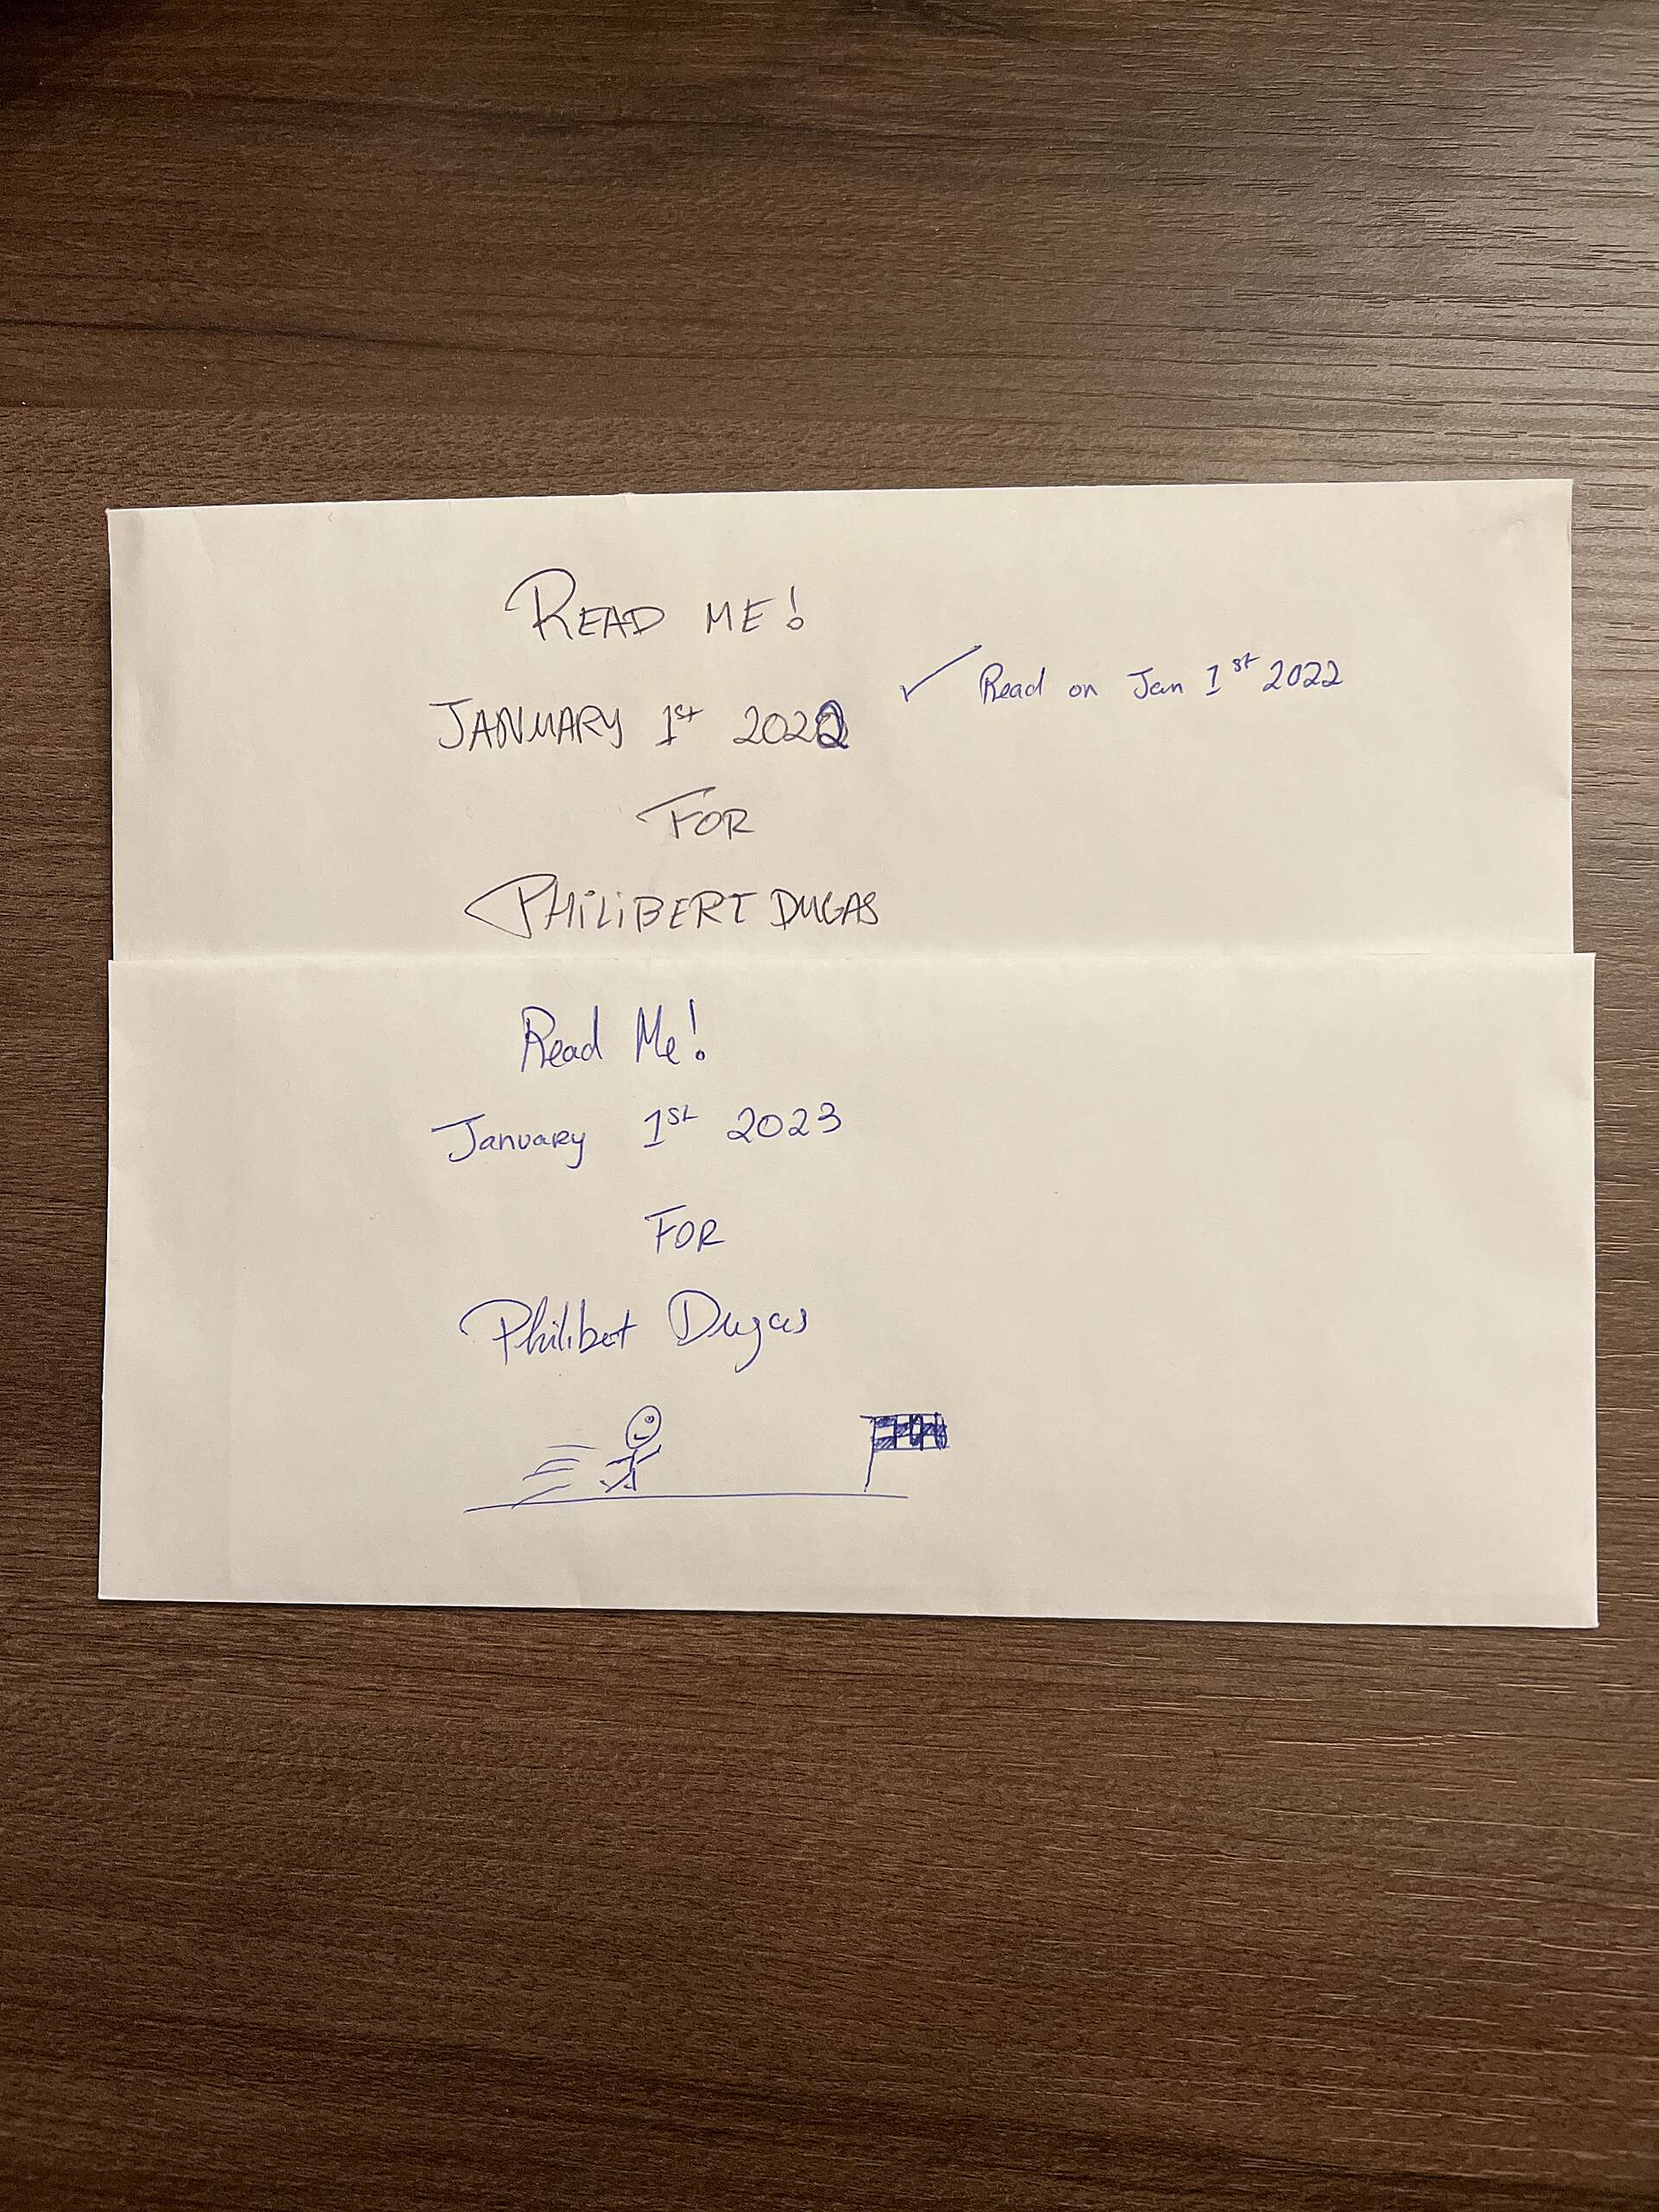 READ ME!
JANUARY 1st 2022
✓ Read on Jan 1st 2022
FOR
PHILIBERT DUGAS
Read Me!
January 1st 2023
FOR
Philibert Dugas